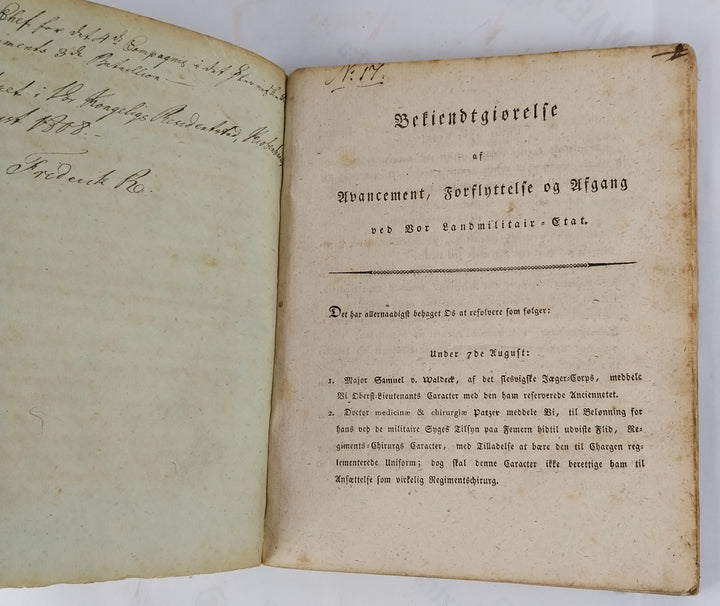 Chef for det 4de Compagnie i det
3de Bataillon —
i Vor Kongelige Residentstad, Kiøbenhavn
August 1808. —
Frederik R.
No: 17.
Bekiendtgiørelse
af
Avancement, Forflyttelse og Afgang
ved Vor Landmilitair-Etat.
Det har allernaadigst behaget Os at resolvere som følger:
Under 7de August:
1. Major Samuel v. Waldeck, af det slesvigske Jæger-Corps, meddele
Vi Oberst-Lieutenants Caracter med den ham reserverede Anciennetet.
2. Doctor medicinæ & chirurgiæ Patzer meddele Vi, til Belønning for
hans ved de militaire Syges Tilsyn paa Femern hidtil udviste Flid, Re-
giments-Chirurgs Caracter, med Tilladelse at bære den til Chargen reg-
lementerede Uniform; dog skal denne Caracter ikke berettige ham til
Ansættelse som virkelig Regimentschirurg.